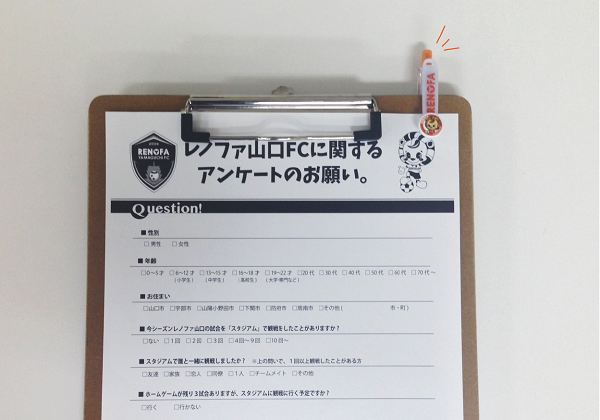 RENOFA
RENOFA
YAMAGUCHI FC
レノファ山口FCに関する
アンケートのお願い。
Question!
■ 性別
□ 男性 □ 女性
■ 年齢
□0〜5才 □6〜12才 □13〜15才 □16〜18才 □19〜22才 □20代 □30代 □40代 □50代 □60代 □70代〜
(小学生) (中学生) (高校生) (大学・専門など)
■ お住まい
□山口市 □宇部市 □山陽小野田市 □下関市 □防府市 □周南市 □その他 ( 市・町 )
■ 今シーズンレノファ山口の試合を「スタジアム」で観戦をしたことがありますか？
□ない □1回 □2回 □3回 □4回〜9回 □10回〜
■ スタジアムで誰と一緒に観戦しましたか？ ※上の問いで、1回以上観戦したことがある方
□友達 □家族 □恋人 □同僚 □1人 □チームメイト □その他
■ ホームゲームが残り3試合ありますが、スタジアムに観戦に行く予定ですか？
□行く □行かない